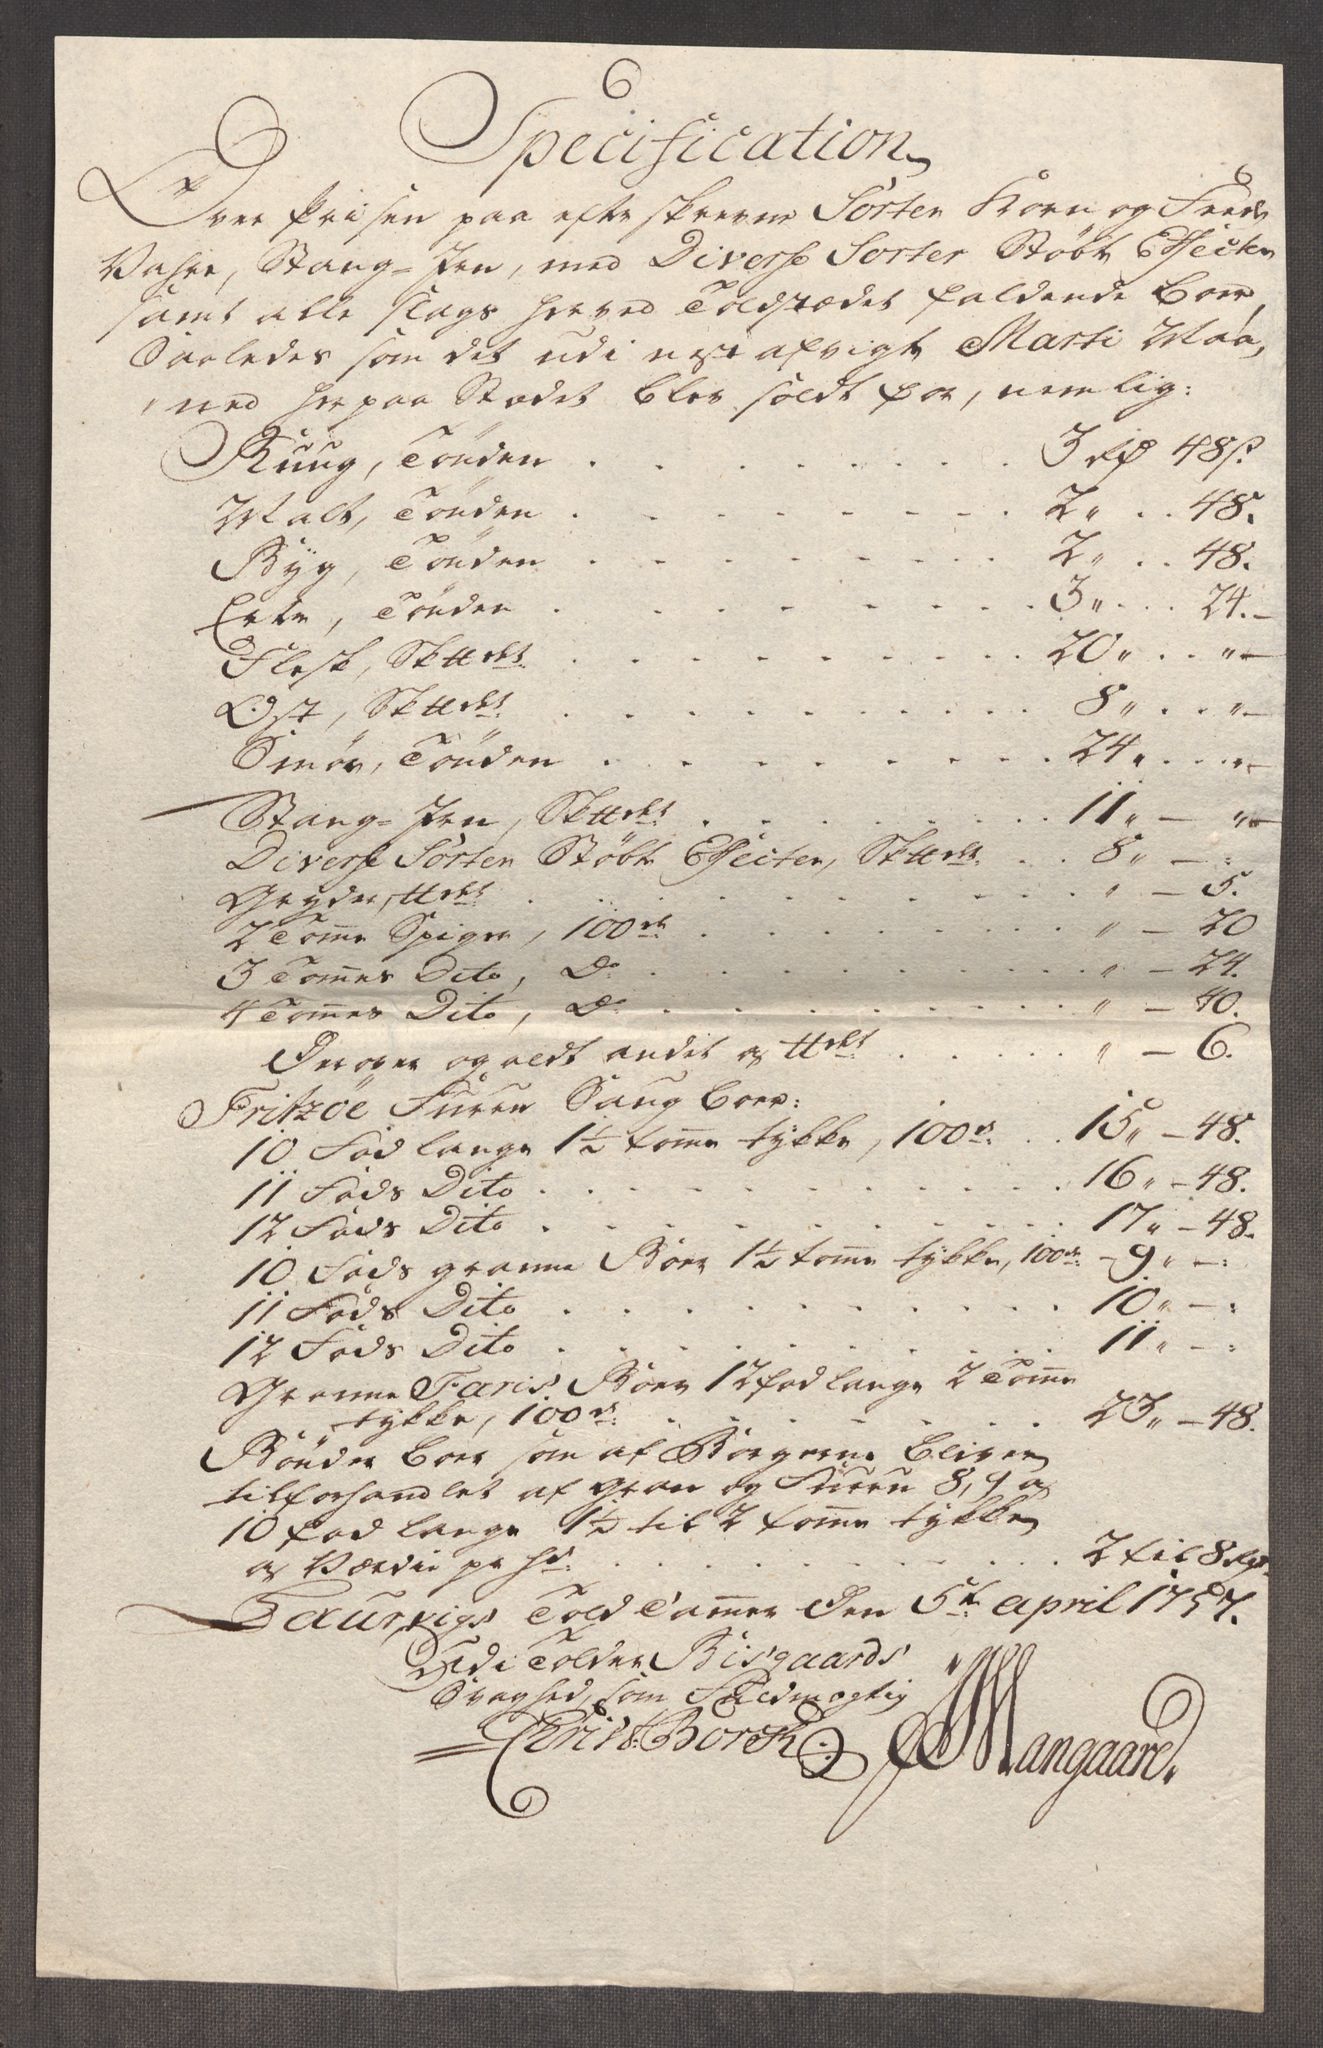 Specification
Over Prisen paa efterskrevne Sorter Korn og Feede
Vahre, Stang-Jern, med Diverse Sorter Støbte Effecter
samt alle slags herved Toldstædet faldende Bord,
Saaledes som det udi nest afvigte Marti Maa,
ned her paa Stædet blev soldt for, nemlig:
Rúúg, Tønden . . . . . . . 3 rd 48 s.
Malt, Tønden . . . . . . . 2 „ . . 48.
Byg, Tønden . . . . . . . 2 „ . . 48.
Erter, Tønden . . . . . . . 3 „ . . . 24. -
Flesk, Sk℔det . . . . . . . 20 „ . . „ -
Ost, Sk℔det . . . . . . . 8 „ . . „ -
Smør, Tønden . . . . . . . 24 „ . . . „ -
Stang-Jern, Sk℔det . . . . . . . 11 „ — „ -
Diverse Sorter Støbte Effecter, Sk℔det . . 8 „ — :
Gryder, ℔det . . . . . . . „ — 5.
2 Tomme Spiger, 100de . . . . . . . „ — 20
3 Tommes Dito, Do . . . . . . . „ — 24.
4 Tommes Dito, Do . . . . . . . „ — 40.
og aldt andet a ℔det . . . . . „ — 6.
Fritzöe Furru Saug Bord:
10 Fod lange 1½ tomme tykke, 100de . . 15 „ — 48.
11 Fods Dito . . . . . . . 16 „ — 48.
12 Fods Dito . . . . . . . 17 „ — 48.
10 Fods granne Bord 1½ tomme tykke, 100de - 9 „ — :
11 Fods Dito . . . . . . . 10 „ — :
12 Fods Dito . . . . . . . 11 „ — :
Granne Faris Bord 12 fod lange 2 Tomme
tykke, 100de . . . . . . . 23 „ — 48.
Bönder Bord som af Borgerne bliver
tilforhandlet af gran og Furru 8, 9 a
10 fod lange 1½ til 2 tomme tykke
a Værdie pr Hd. . . . . . . . 2 til 8 rdr
Laurvigs Told Cammer den 5te april 1757.
Udi Tolder Bisgaards
Svaghed, som Fuldmægtig
Christ: Borch. Mangaard.